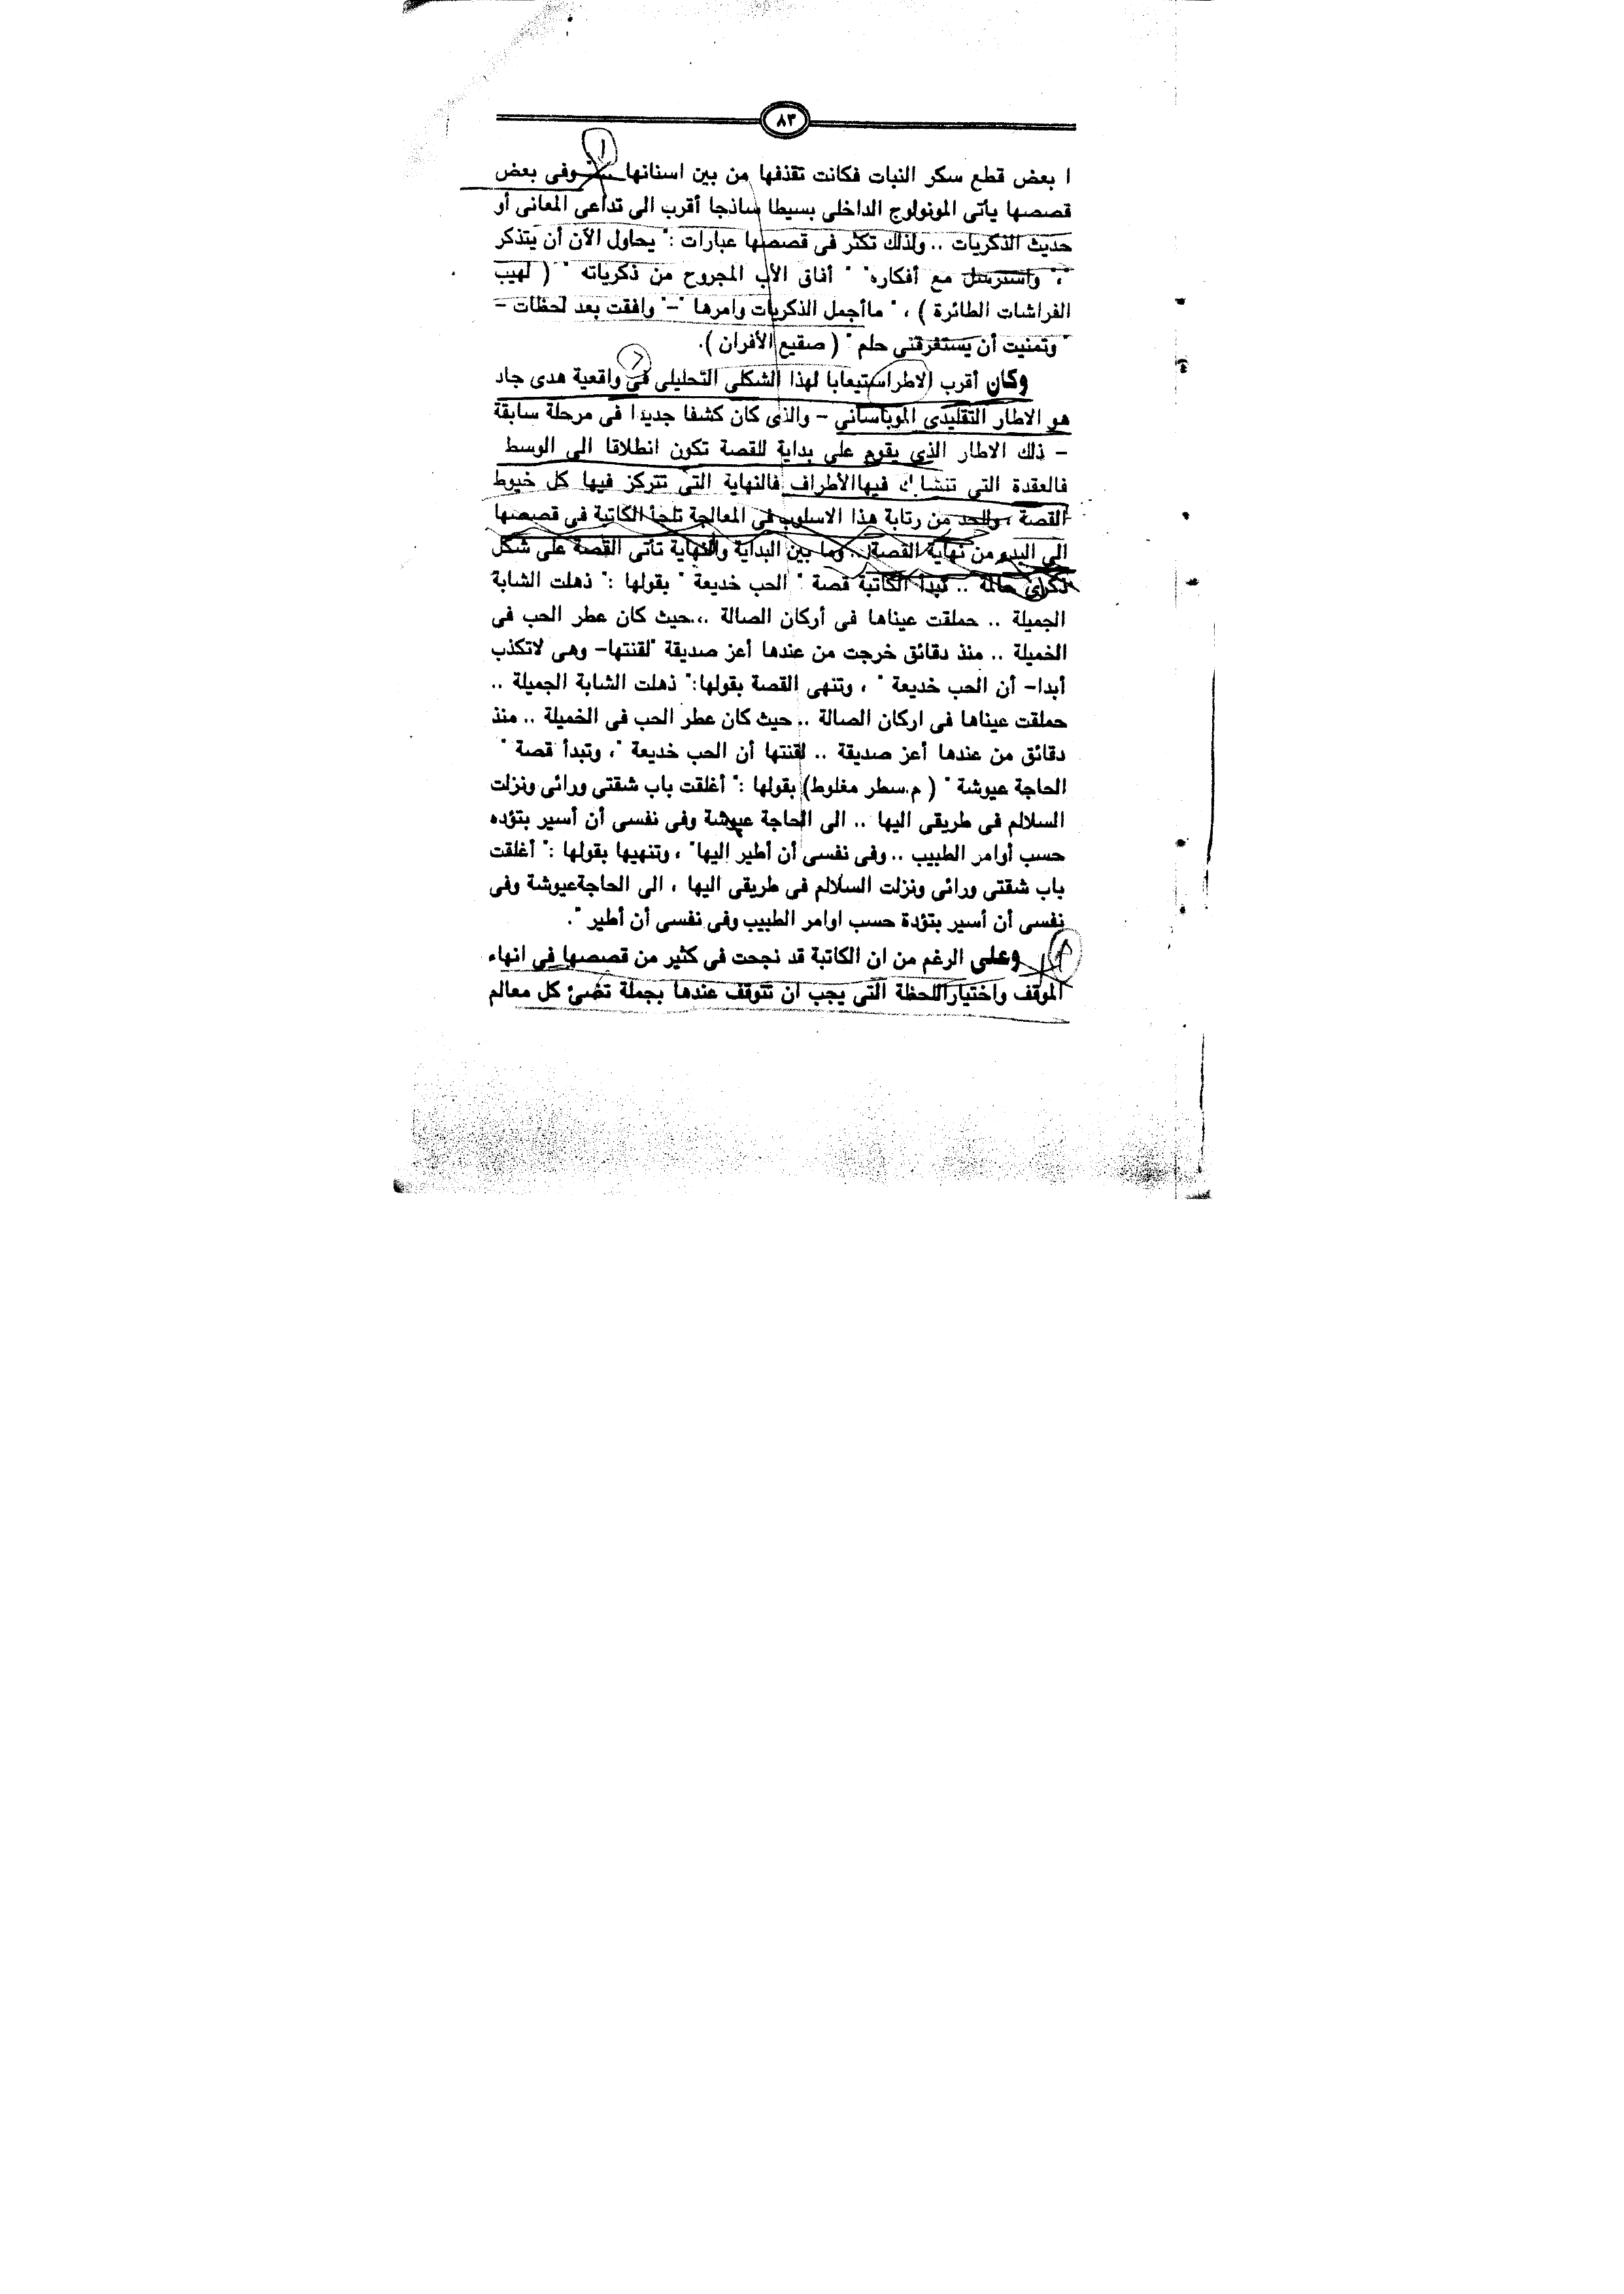 ٨٣
ا بعض قطع سكر النبات فكانت تقذفها من بين اسنانها ... وفى بعض
قصصها يأتى المونولوج الداخلى بسيطا ساذجا أقرب الى تداعى المعانى أو
حديث الذكريات .. ولذلك تكثر فى قصصها عبارات :" يحاول الآن أن يتذكر
"،" واسترسل مع أفكاره" " أفاق الأب المجروح من ذكرياته " ( لهيب
الفراشات الطائرة ) ، " ماأجمل الذكريات وامرها "–" وافقت بعد لحظات –
" وتمنيت أن يستغرقنى حلم " ( صقيع الأفران ).
وكان أقرب الاطر استيعابا لهذا الشكلى التحليلى فى واقعية هدى جاد
هو الاطار التقليدى الموباسانى – والذى كان كشفا جديدا فى مرحلة سابقة
– ذلك الاطار الذي يقوم على بداية للقصة تكون انطلاقا الى الوسط
فالعقدة التى تتشابك فيهاالأطراف فالنهاية التى تتركز فيها كل خيوط
القصة ، وللحد من رتابة هذا الاسلوب فى المعالجة تلجأ الكاتبة فى قصصها
الى البدء من نهاية القصة .. وما بين البداية والنهاية تأتى القصة على شكل
ذكرى حالمة .. تبدأ الكاتبة قصة " الحب خديعة " بقولها :" ذهلت الشابة
الجميلة .. حملقت عيناها فى أركان الصالة ... حيث كان عطر الحب فى
الخميلة .. منذ دقائق خرجت من عندها أعز صديقة "لقنتها– وهى لاتكذب
أبدا– أن الحب خديعة " ، وتنهى القصة بقولها:" ذهلت الشابة الجميلة ..
حملقت عيناها فى اركان الصالة .. حيث كان عطر الحب فى الخميلة .. منذ
دقائق من عندها أعز صديقة .. لقنتها أن الحب خديعة "، وتبدأ قصة "
الحاجة عيوشة " ( م.سطر مغلوط) بقولها :" أغلقت باب شقتى ورائى ونزلت
السلالم فى طريقى اليها .. الى الحاجة عيوشة وفى نفسى أن أسير بتؤده
حسب أوامر الطبيب .. وفى نفسى أن أطير إليها" ، وتنهيها بقولها :" أغلقت
باب شقتى ورائى ونزلت السلالم فى طريقى اليها ، الى الحاجةعيوشة وفى
نفسى أن أسير بتؤدة حسب اوامر الطبيب وفى نفسى أن أطير ".
وعلى الرغم من ان الكاتبة قد نجحت فى كثير من قصصها فى انهاء
الموقف واختياراللحظة التى يجب ان تتوقف عندها بجملة تضئ كل معالم